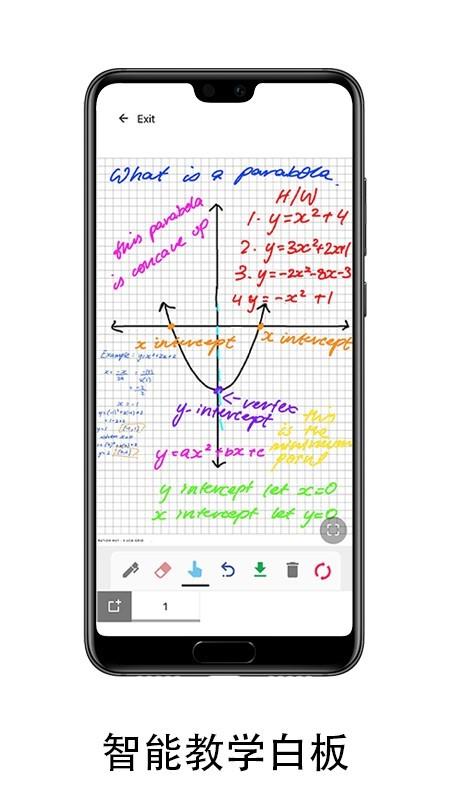 Exit
What is a parabola.
H/W
1. y=x²+4
this parabola
is concave up
2. y=3x²+2x+1
3. y=-2x²-8x-3
4 y=-x²+1
x intercept
x intercept
Example: y=x²+2x+2
<-vertex
y-intercept
this
is the
minimum
point
y=ax²+bx+c
y intercept let x=0
x intercept let y=0
1
智能教学白板